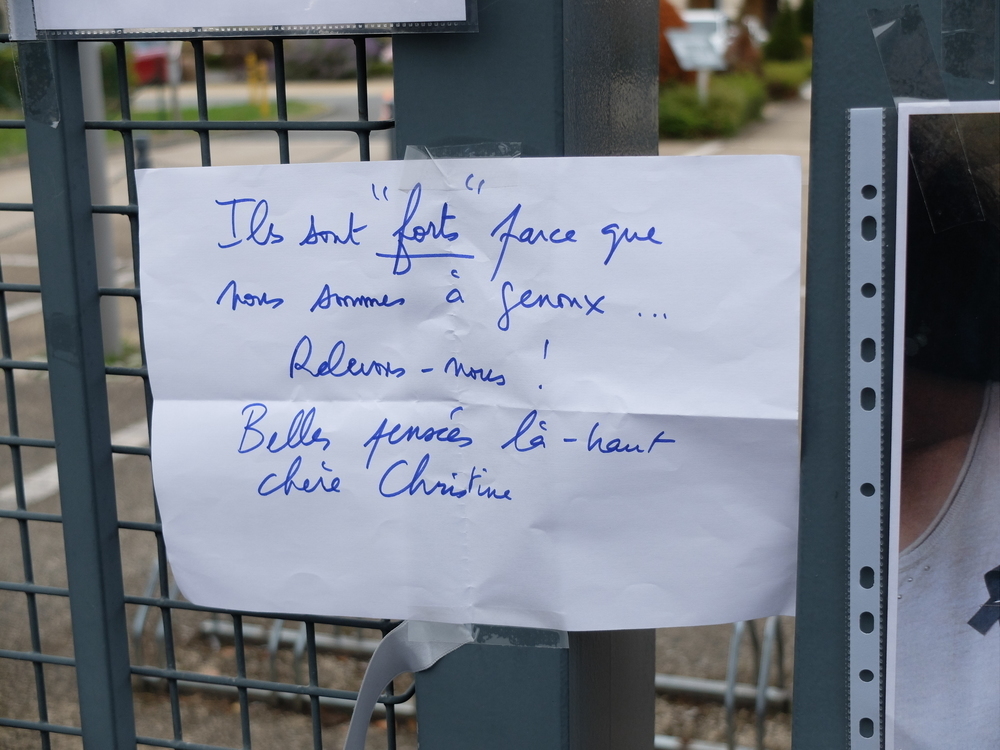 Ils sont "forts" parce que
nous sommes à genoux ...
Relevons-nous !
Belles pensées là-haut
chère Christine